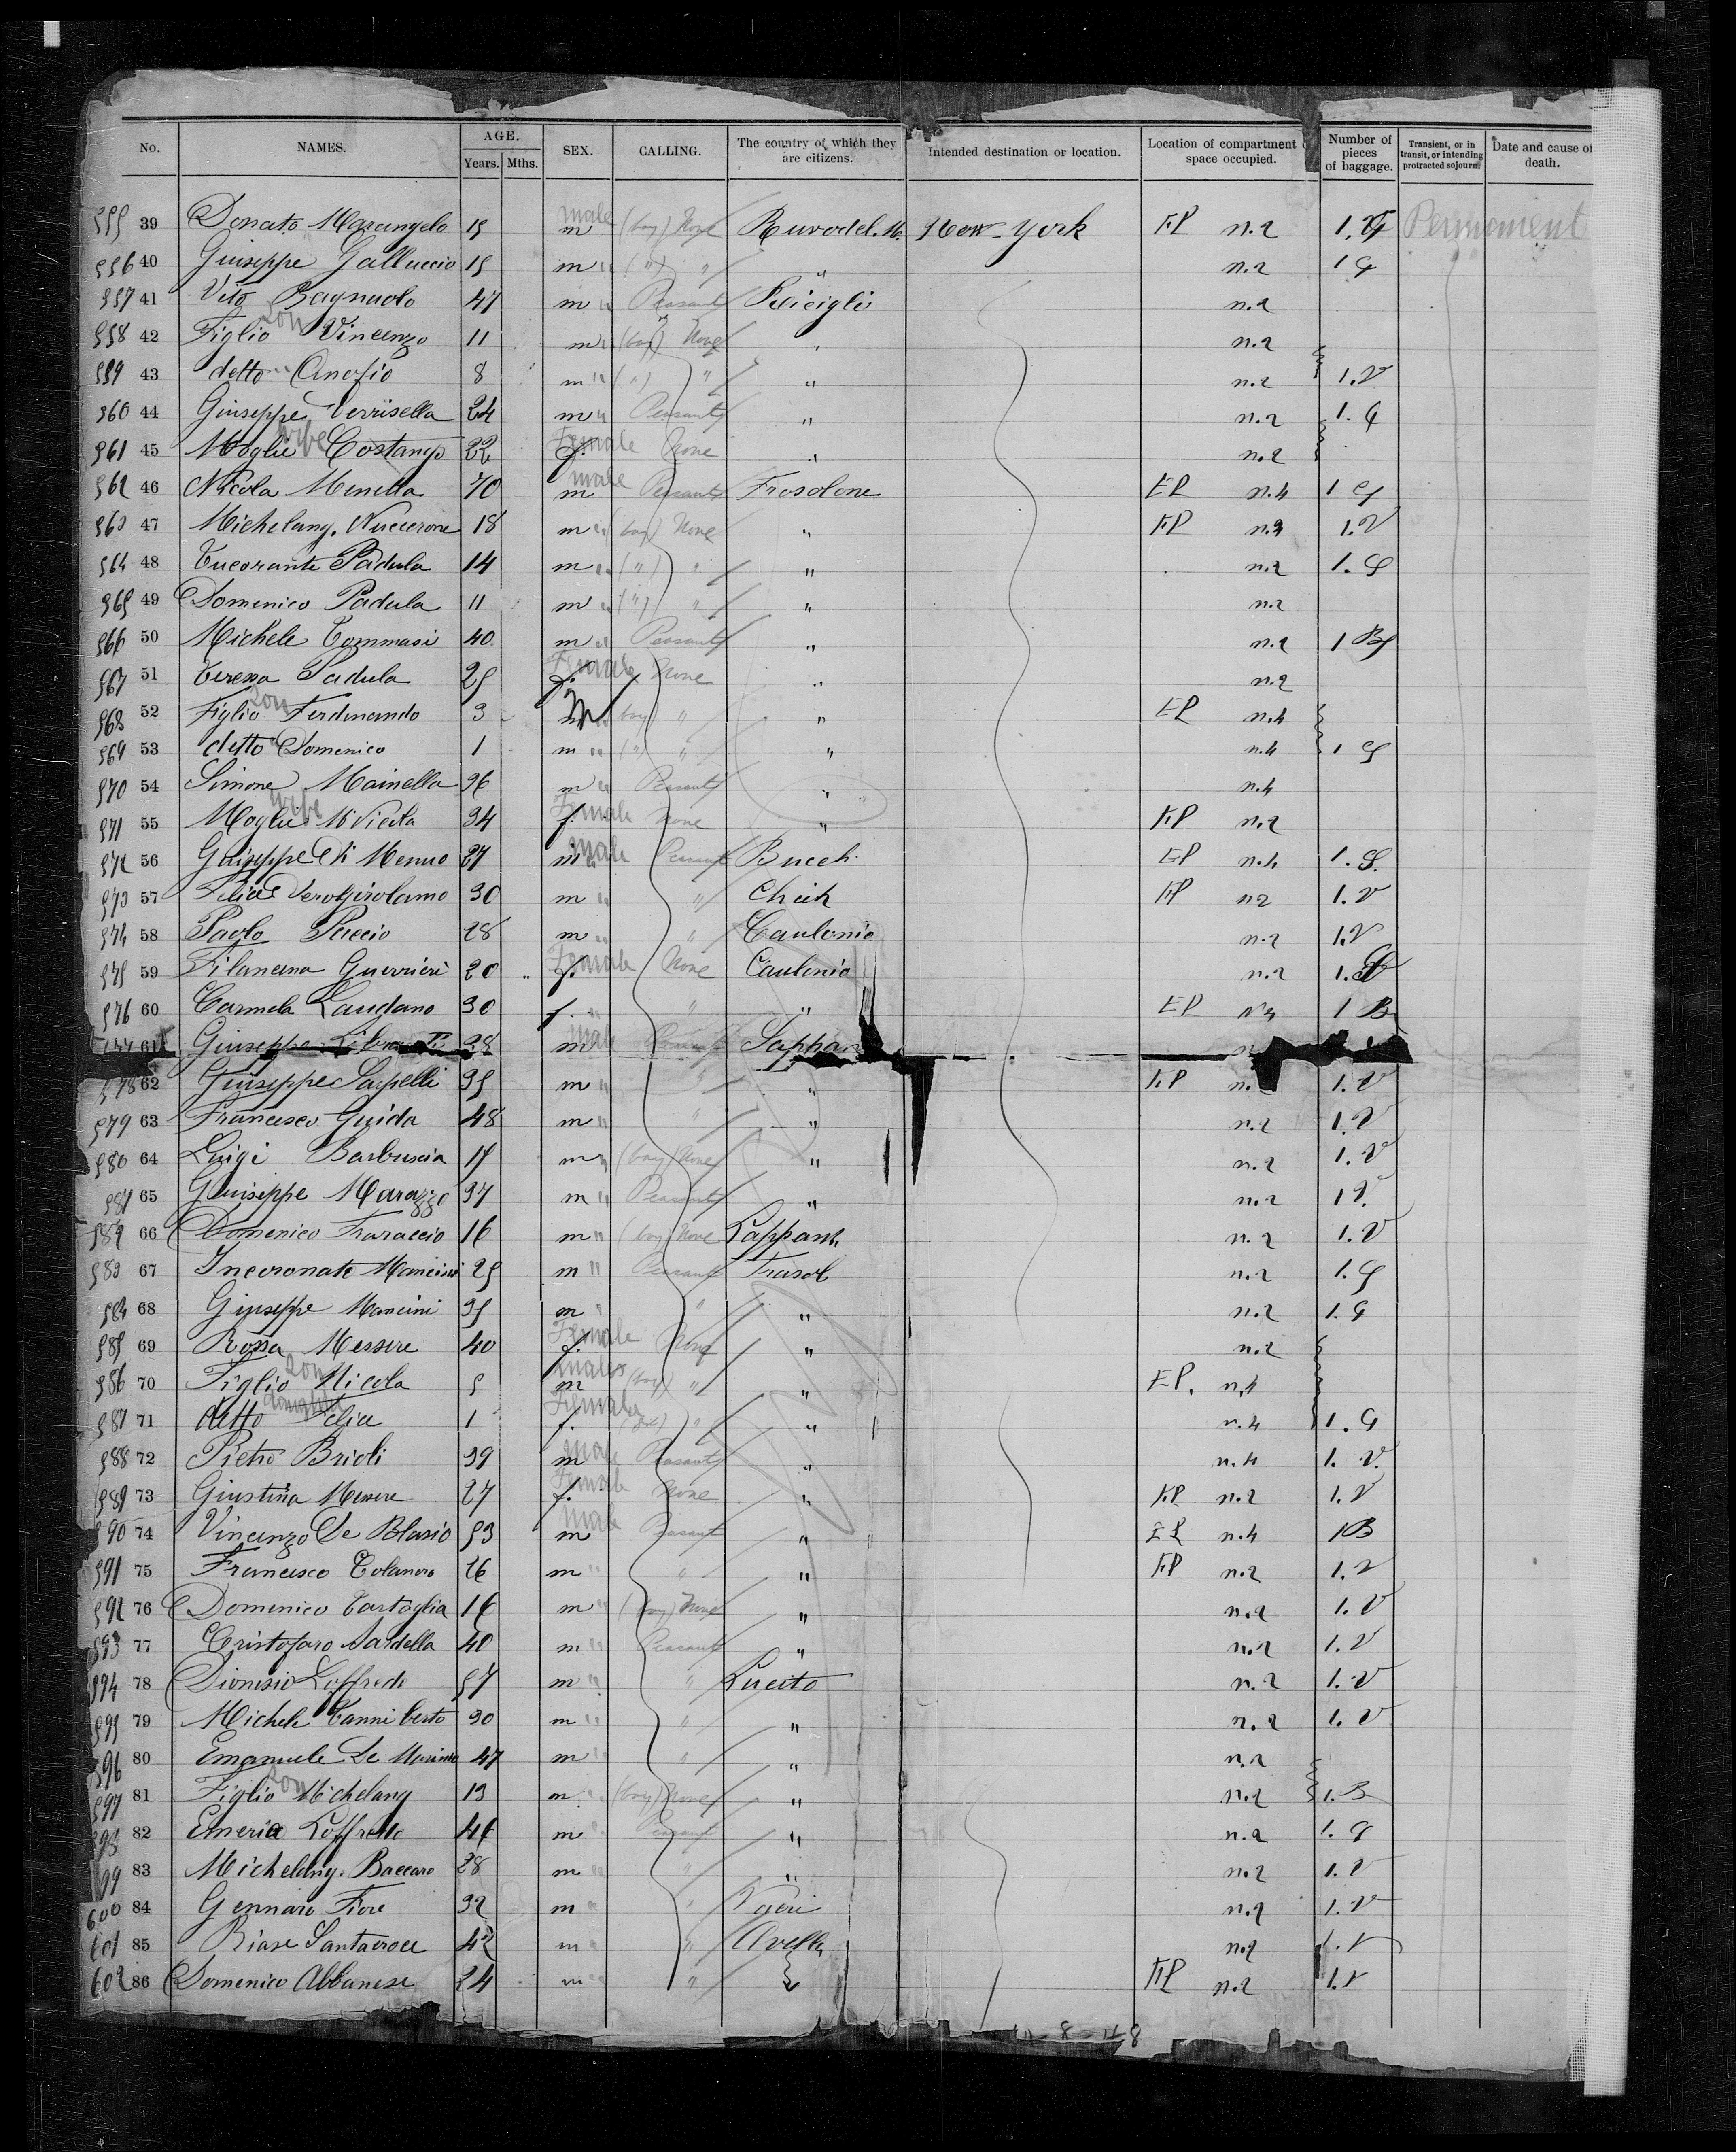 No. NAMES. AGE. Years. Mths. SEX. CALLING. The country of which they are citizens. Intended destination or location. Location of compartment space occupied. Number of pieces of baggage. Transient, or in transit, or intending protracted sojourn Date and cause of death.
555 39 Donato Marangelo 15 male m (boy) None Ruvo del M. New-York FP n.2 1. G Permoment
556 40 Giuseppe Galluccio 15 m " (") " " n.2 1 G
557 41 Vito Bagnuolo 47 m " Peasant Ricigli n.2
558 42 Figlio son Vincenzo 11 m " (boy) None " n.2
559 43 detto " Onofio 8 m " (") " " n.2 1. V
560 44 Giuseppe Verrisella 24 m " Peasant " n.2 1. G
561 45 Moglie wife Costanza 22 Female f. None " n.2
562 46 Nicola Menella 70 male m Peasant Frosolone EP n.4 1 G
563 47 Michelang. Nuccerone 18 m " (boy) None " FP n.2 1. V
564 48 Padula 14 m " (") " " n.2 1. G
565 49 Domenico Padula 11 m " (") " " n.2
566 50 Michele Tommasi 40 m " Peasant " n.2 1 B
567 51 Teressa Padula 25 Female f. None " n.2
568 52 Figlio son Ferdinando 3 m " boy) " " EP n.4
569 53 detto " Domenico 1 m " (") " " n.4 1 G
570 54 Simone Mainella 36 m " Peasant " n.4
571 55 Moglie wife M Nicola 34 Female f. None " FP n.2
572 56 Giuseppe Di Menno 27 male m Peasant Bucch. EP n.4 1. G.
573 57 Felice Derogirolamo 30 m " " Chieti FP n2 1. V
574 58 Paolo Puccio 28 m " " Caulonio n.2 1. V
575 59 Filomena Guerrieri 20 " Female f. None Caulonio n.2 1.
576 60 Carmela Laudano 30 f. " " " EP n4 1 B
61 Giuseppe 28 male m Peasant
578 62 Giuseppe Sarpelli 35 m " " " FP n. 1. V
579 63 Francesco Guida 48 m " " " n.2 1. V
580 64 Luigi Barbuscia 17 m " (boy) None " n.2 1. V
581 65 Giuseppe Marazzo 37 m " Peasant " n.2 1 V.
582 66 Domenico Fraraccio 16 m " (boy) None n.2 1. V
583 67 Incoronate Mancini 25 m " Peasant Frasol n.2 1. G
584 68 Giuseppe Mancini 35 m " " " n.2 1. G
585 69 Rossa Messere 40 Female f. None " n.2
586 70 Figlio son Nicola 5 males m (boy) " " EP. n.4
587 71 detto daughter Felice 1 Female f. " " n.4 1. G
588 72 Pietro Brioli 39 male m Peasant " n.4 1. V.
589 73 Giustina Messere 27 Female f. None " FP n.2 1. V
590 74 Vincenzo De Blasio 53 male m Peasant " EP n.4 1 B
591 75 Francesco Colanero 26 m " " " FP n.2 1. V
592 76 Domenico Tartaglia 16 m " (boy) None " n.2 1. V
593 77 Cristofaro Sardella 40 m " Peasant " n.2 1. V
594 78 Dionisio Loffredo 57 m " " Lucito n.2 1. V
595 79 Michele Canniberto 30 m " " " n.2 1. V
596 80 Emanuele De Marino 47 m " " n.2
597 81 Figlio son Michelang 13 m " (boy) None " n.2 1. B
598 82 Emeria Loffredo 46 m " Peasant " n.2 1. G
99 83 Michelang. Baccaro 28 m " " " n.2 1. V
600 84 Gennaro Fiore 32 m " " n.2 1. V
601 85 Biase Santacroce 42 m " " Avella n.2 1. V
602 86 Domenico Albanese 24 m " " FP n.2 1. V